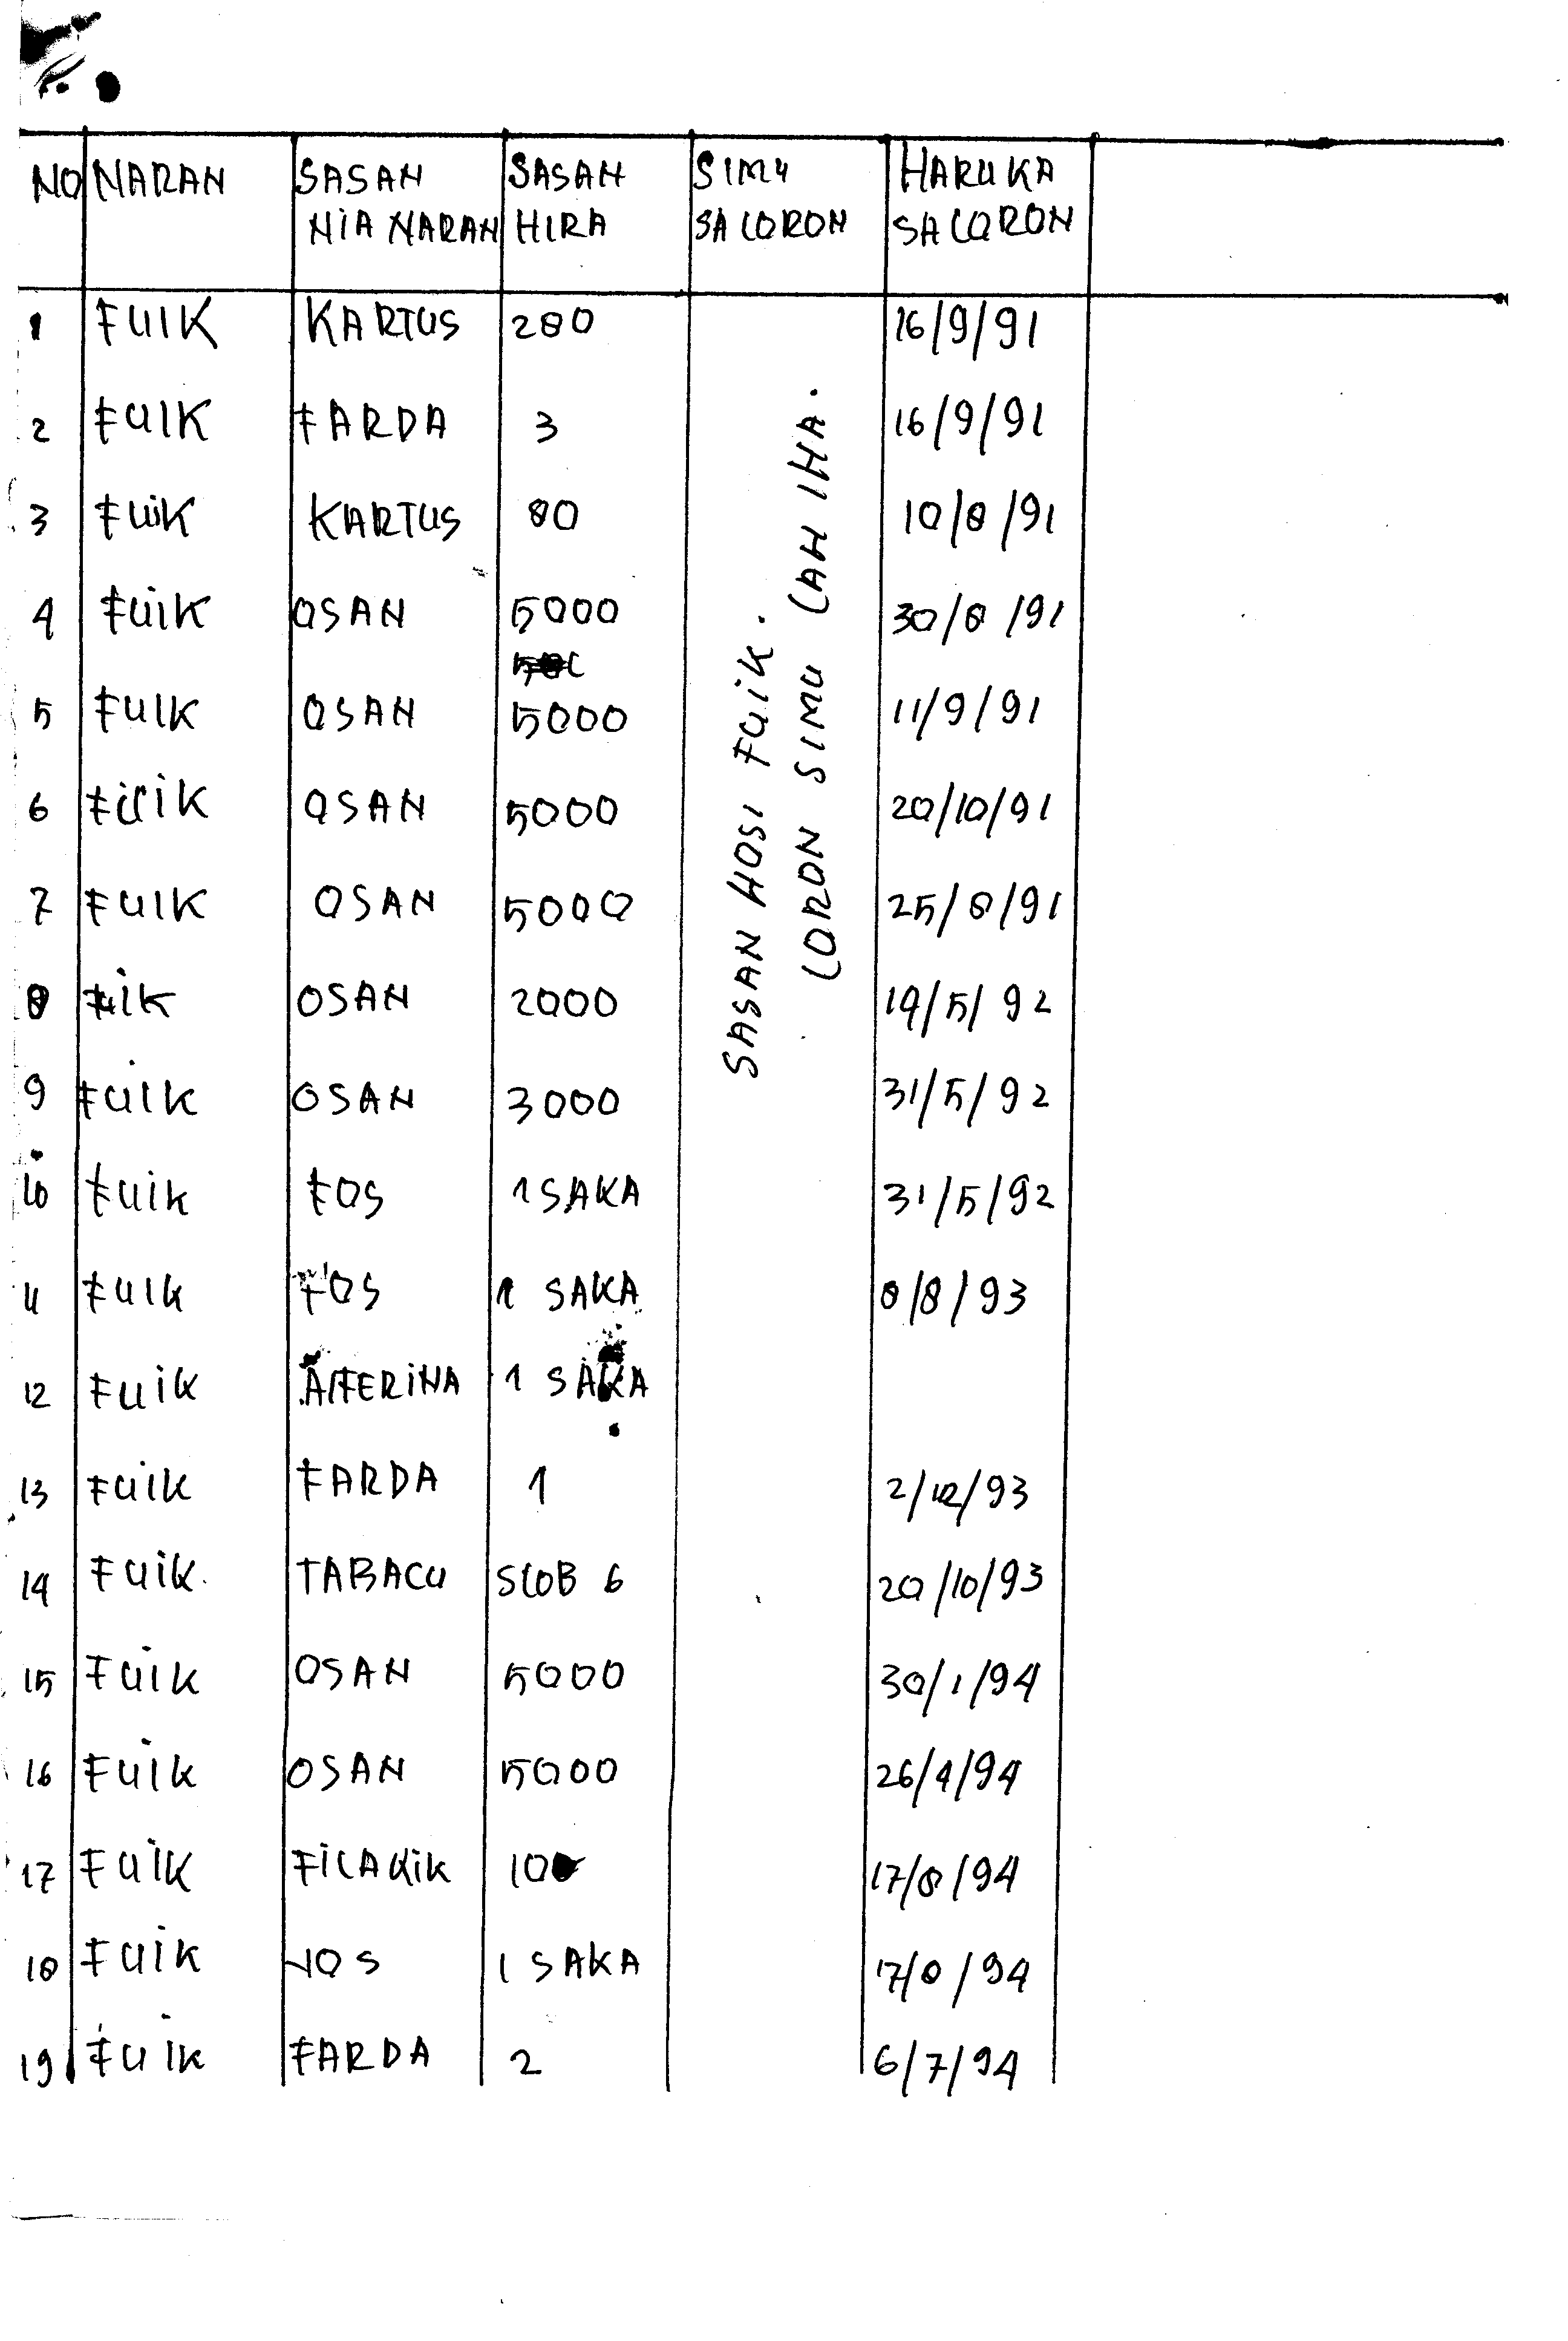 NO NARAN SASAN SASAN SIMU HARUKA
NIA NARAN HIRA SA LORON SA LORON
1 FUIK KARTUS 280 16/9/91
2 FUIK FARDA 3 16/9/91
3 FUIK KARTUS 80 10/8/91
4 FUIK OSAN 5000 30/8/91
5 FUIK OSAN 5000 11/9/91
6 FUIK OSAN 5000 20/10/91
7 FUIK OSAN 5000 25/8/91
8 FUIK OSAN 2000 19/5/92
9 FUIK OSAN 3000 31/5/92
10 FUIK FOS 1 SAKA 31/5/92
11 FUIK FOS 1 SAKA 8/8/93
12 FUIK 1 SAKA
13 FUIK FARDA 1 2/12/93
14 FUIK TABACU SLOB 6 20/10/93
15 FUIK OSAN 5000 30/1/94
16 FUIK OSAN 5000 26/4/94
17 FUIK FILAKIK 17/8/94
18 FUIK FOS 1 SAKA 17/8/94
19 FUIK FARDA 2 6/7/94
SASAN HOSI FUIK.
LORON SIMU LAH IHA.